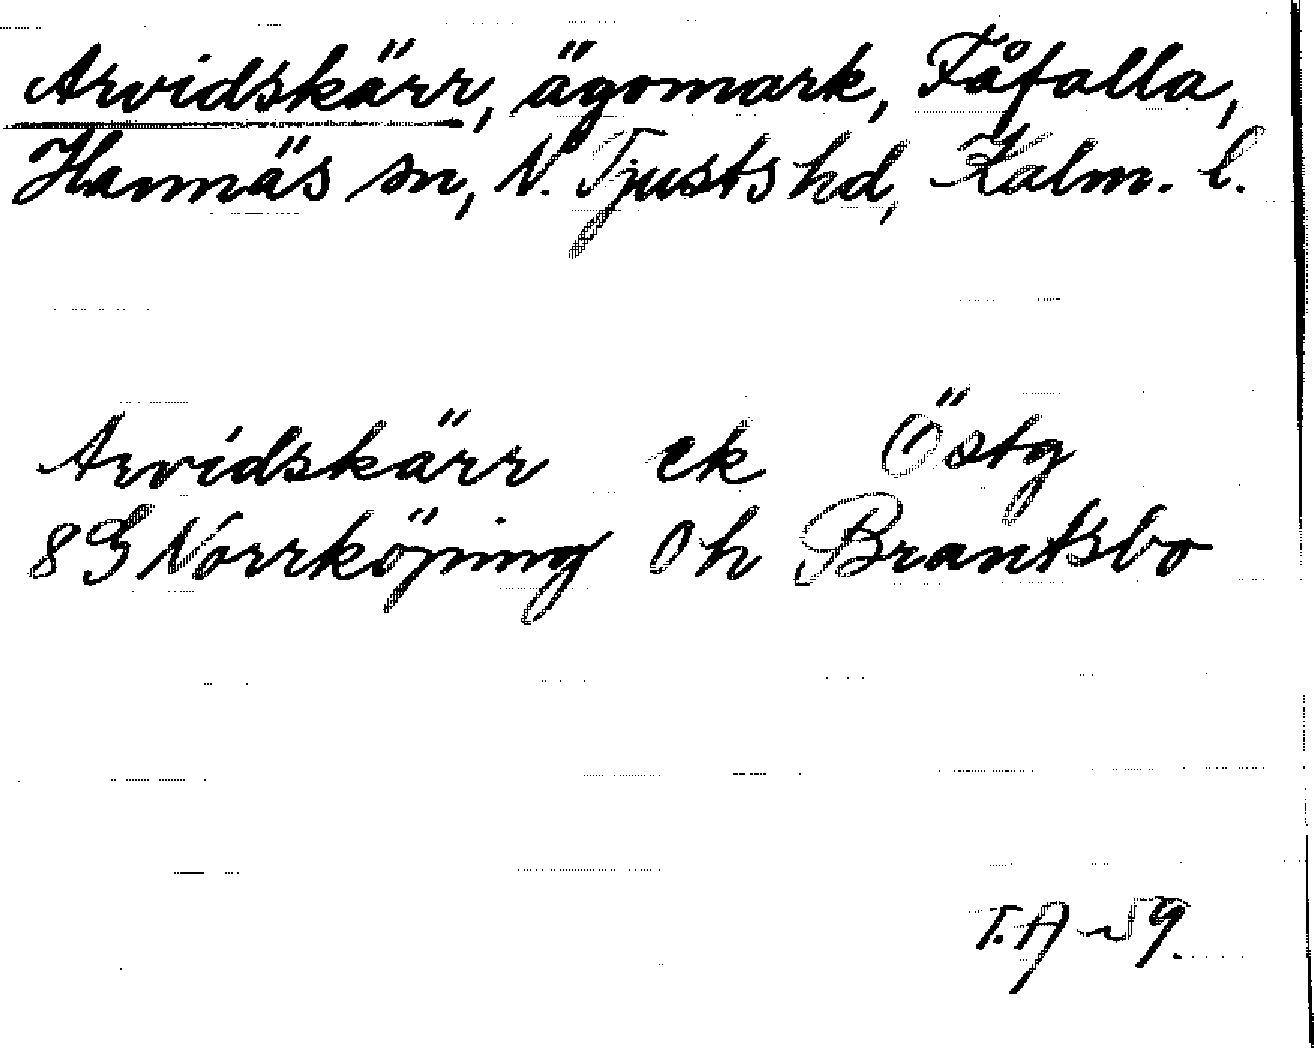 Arvidskärr, ägomark, Fåfalla,
Hannäs sn, N. Tjusts hd, Kalm. l.
Arvidskärr ek Östg
8G Norrköping Oh Brantsbo
T.A -59.